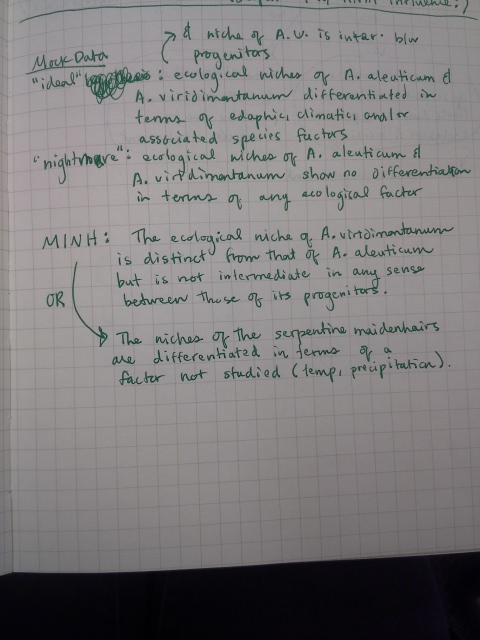 MINH influence?)
& niche of A.V. is inter. b/w
progenitors
Mock Data
"ideal" : ecological niches of A. aleuticum &
A. viridimontanum differentiated in
terms of edaphic, climatic, and/or
associated species factors
"nightmare": ecological niches of A. aleuticum &
A. viridimontanum show no differentiation
in terms of any ecological factor
MINH: The ecological niche of A. viridimontanum
is distinct from that of A. aleuticum
but is not intermediate in any sense
between those of its progenitors.
OR
The niches of the serpentine maidenhairs
are differentiated in terms of a
factor not studied (temp, precipitation).